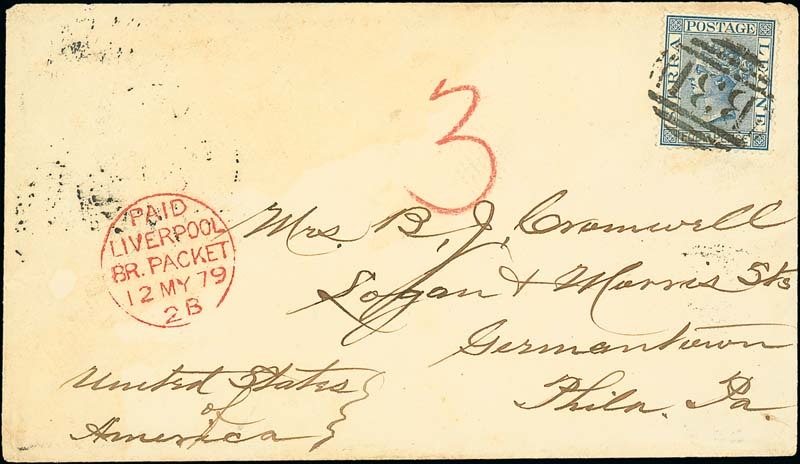 POSTAGE
SIERRA LEONE
B31
3
PAID
LIVERPOOL
BR. PACKET
12 MY 79
2B
Mrs. B. J. Cromwell
Logan & Morris Sts
Germantown
Phila. Pa.
United States
of
America